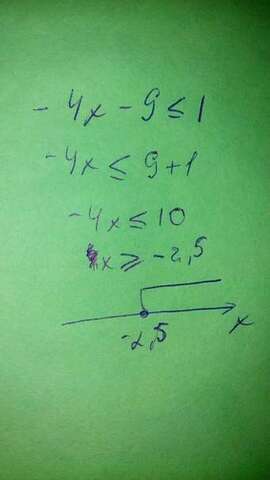 - 4x - 9 ≤ 1
-4x ≤ 9+1
-4x ≤ 10
x ≥ -2,5
-2,5 x